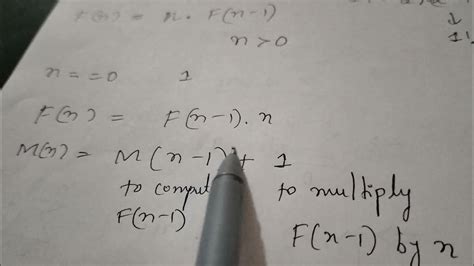 F(n) = n. F(n-1)
n>0
1!
n = =0 1
F(n) = F(n-1). n
M(n) = M(n-1) + 1
to comput to multiply
F(n-1) F(n-1) by n